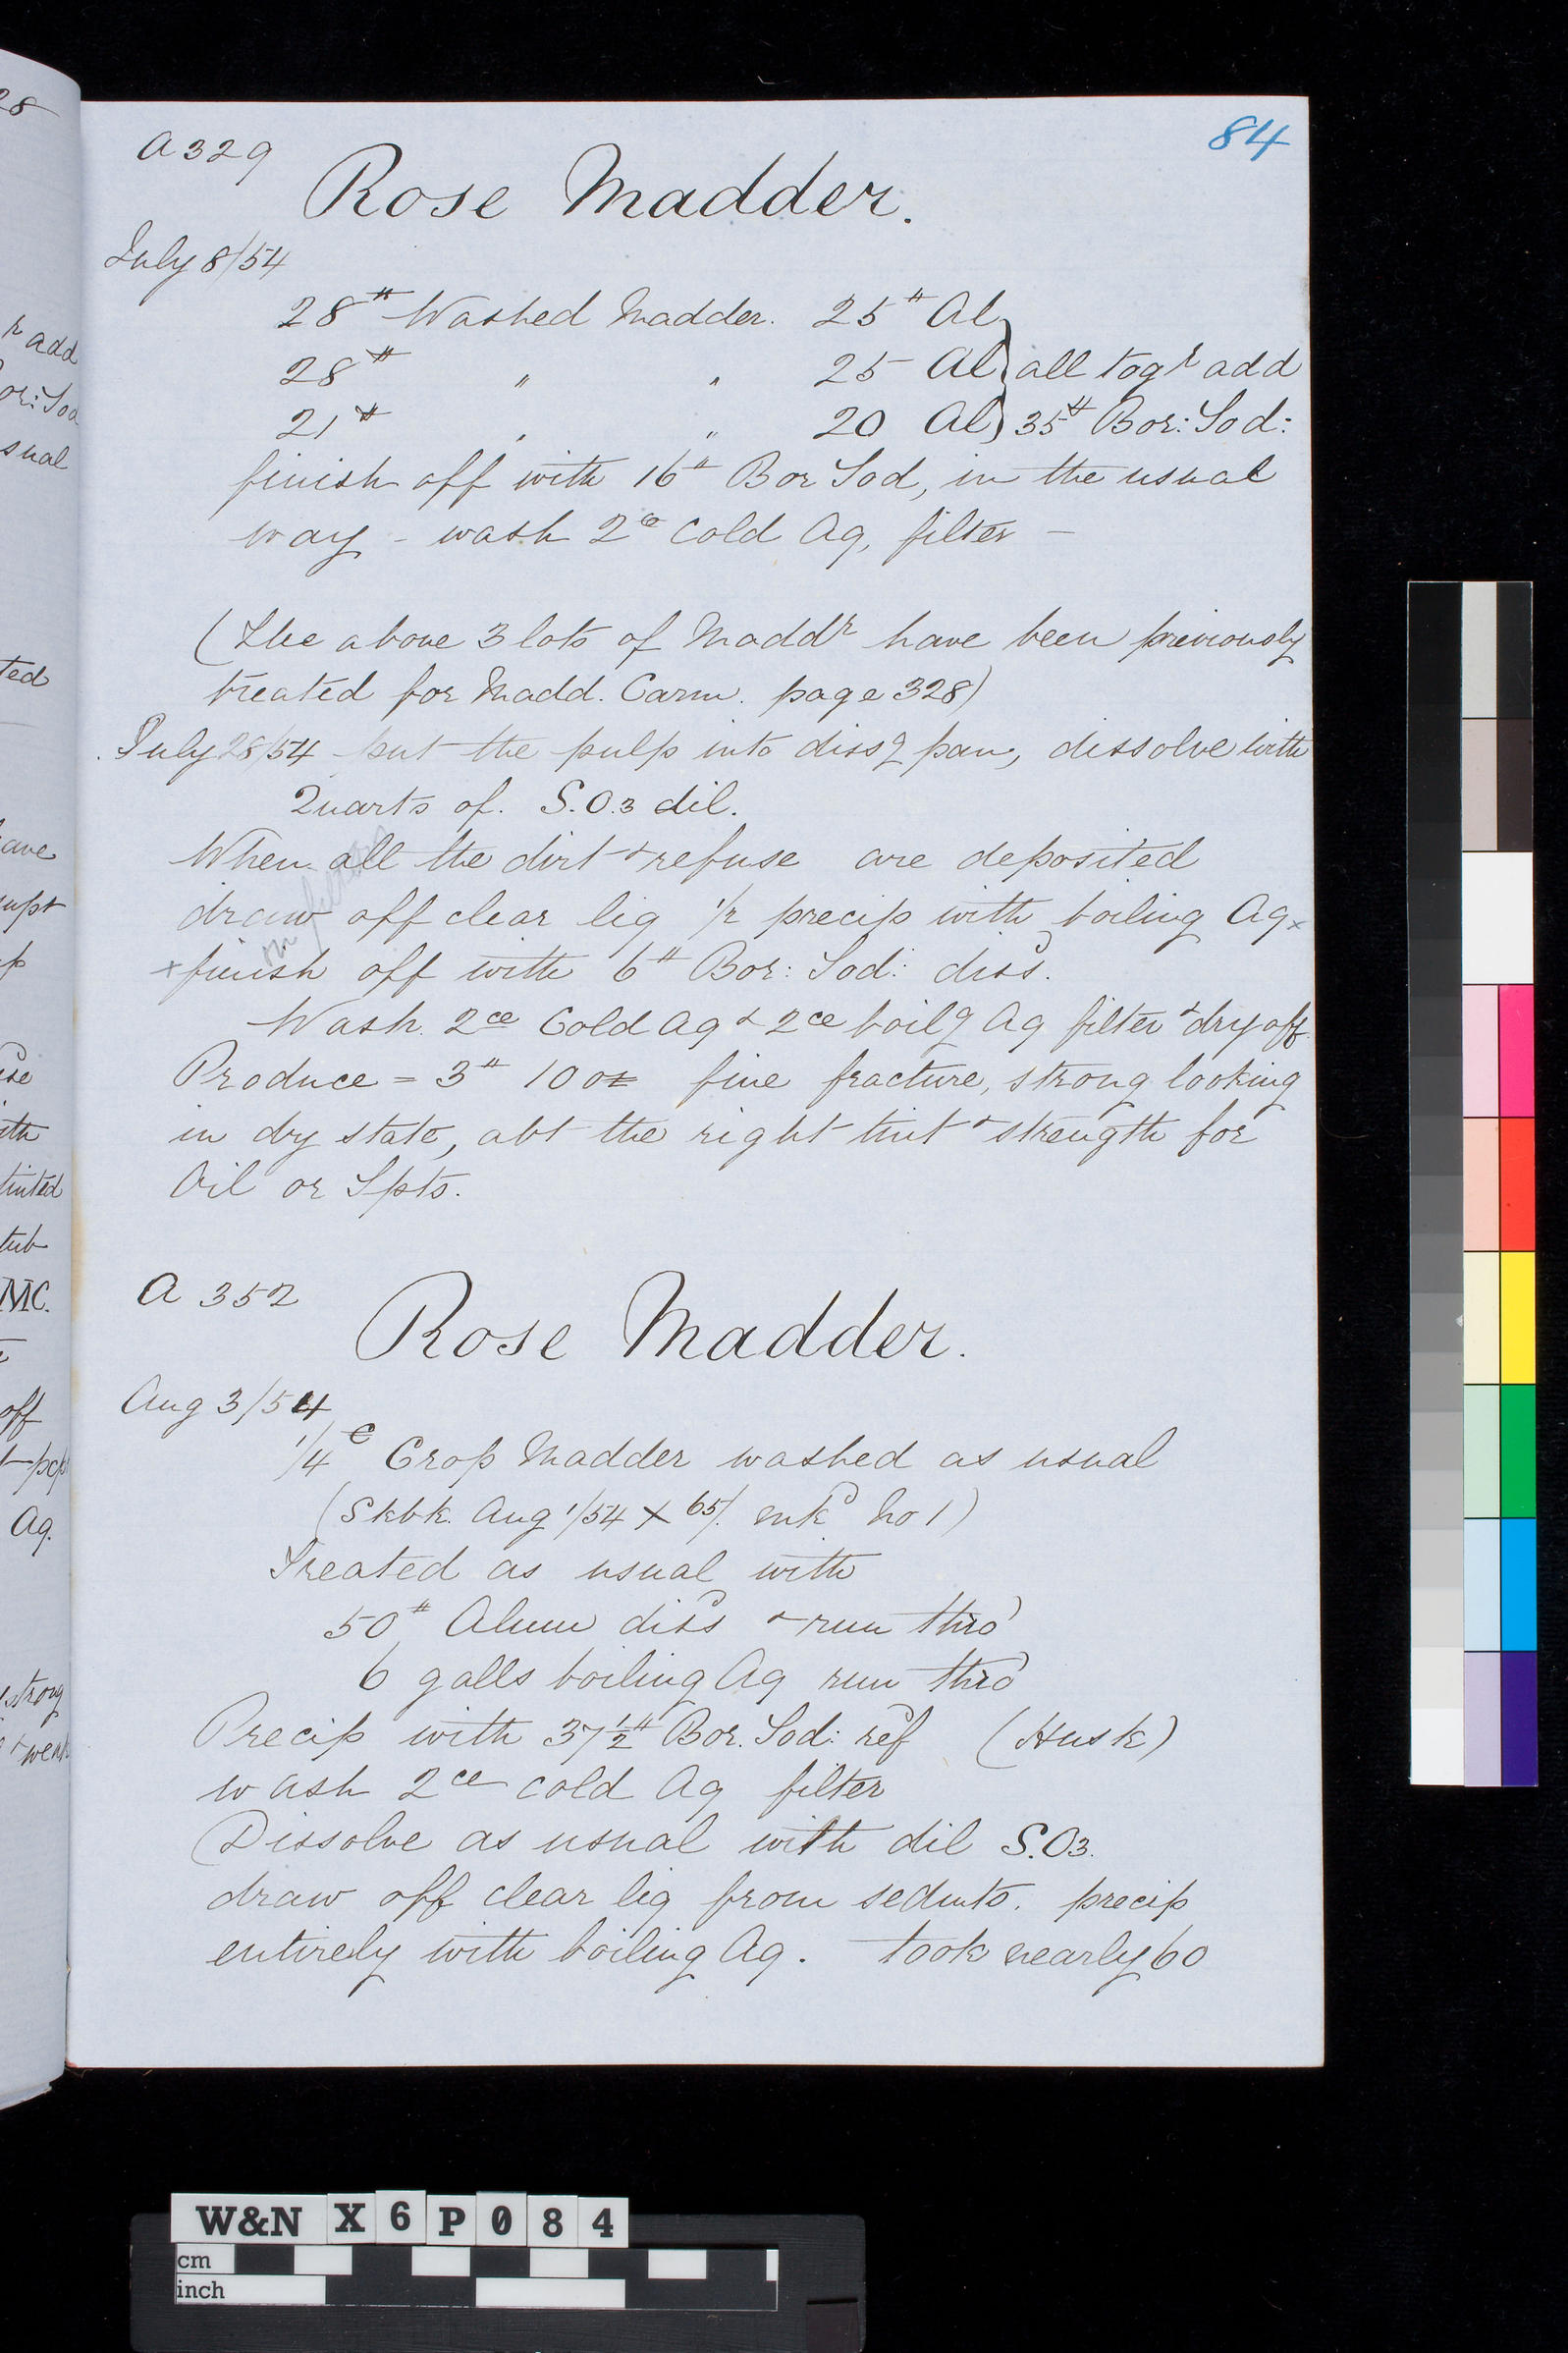 84
A329
Rose Madder.
July 8/54
28# Washed Madder. 25# Al
28# " " 25 Al } all togr add
21# " " 20 Al } 35# Bor: Sod:
finish off with 16# Bor Sod, in the usual
way - wash 2ce Cold Aq, filter -
(The above 3 lots of Maddr have been previously
treated for Madd. Carm. page 328)
July 28/54 - put the pulp into dissg pan, dissolve with
Quarts of. S.O.3 dil.
When all the dirt & refuse are deposited
draw off clear liq 1/2 precip with boiling Aq x
x finish off with 6# Bor: Sod: dissd.
Wash. 2ce Cold Aq & 2ce boilg Aq filter & dry off.
Produce = 3# 10 oz fine fracture, strong looking
in dry state, abt the right tint & strength for
Oil or Spts.
A 352
Rose Madder.
Aug 3/54
1/4 C Crop Madder washed as usual
(Skbk. Aug 1/54 X 65/. mkd No 1)
Treated as usual with
50# Alum dissd & run thro'
6 galls boiling Aq run thro'
Precip with 37 1/2# Bor. Sod: ref (Husk)
wash 2ce cold Aq filter
Dissolve as usual with dil S.O3.
draw off clear liq from sedmts. precip
entirely with boiling Aq. took nearly 60
28
r add
or: Sod
sual
ted
ave
ith
tinted
tub
MC.
off
Aq.
strong
W&N X6P084
cm
inch